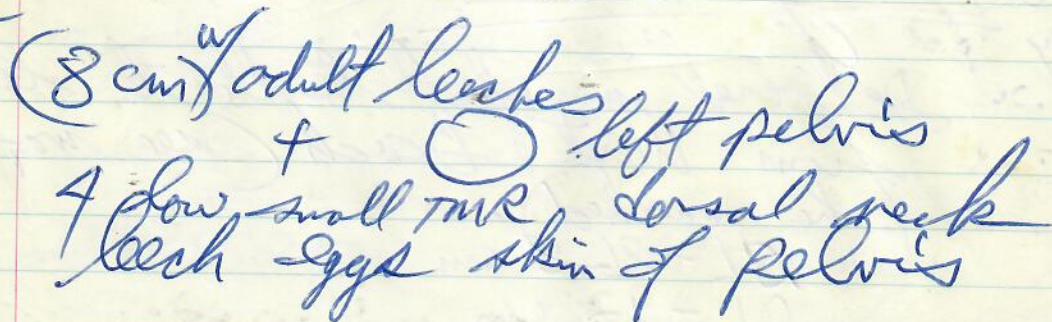 (8 cm) w/ adult leeches
+ left pelvis
4 small TMR, dorsal neck
leech eggs skin of pelvis